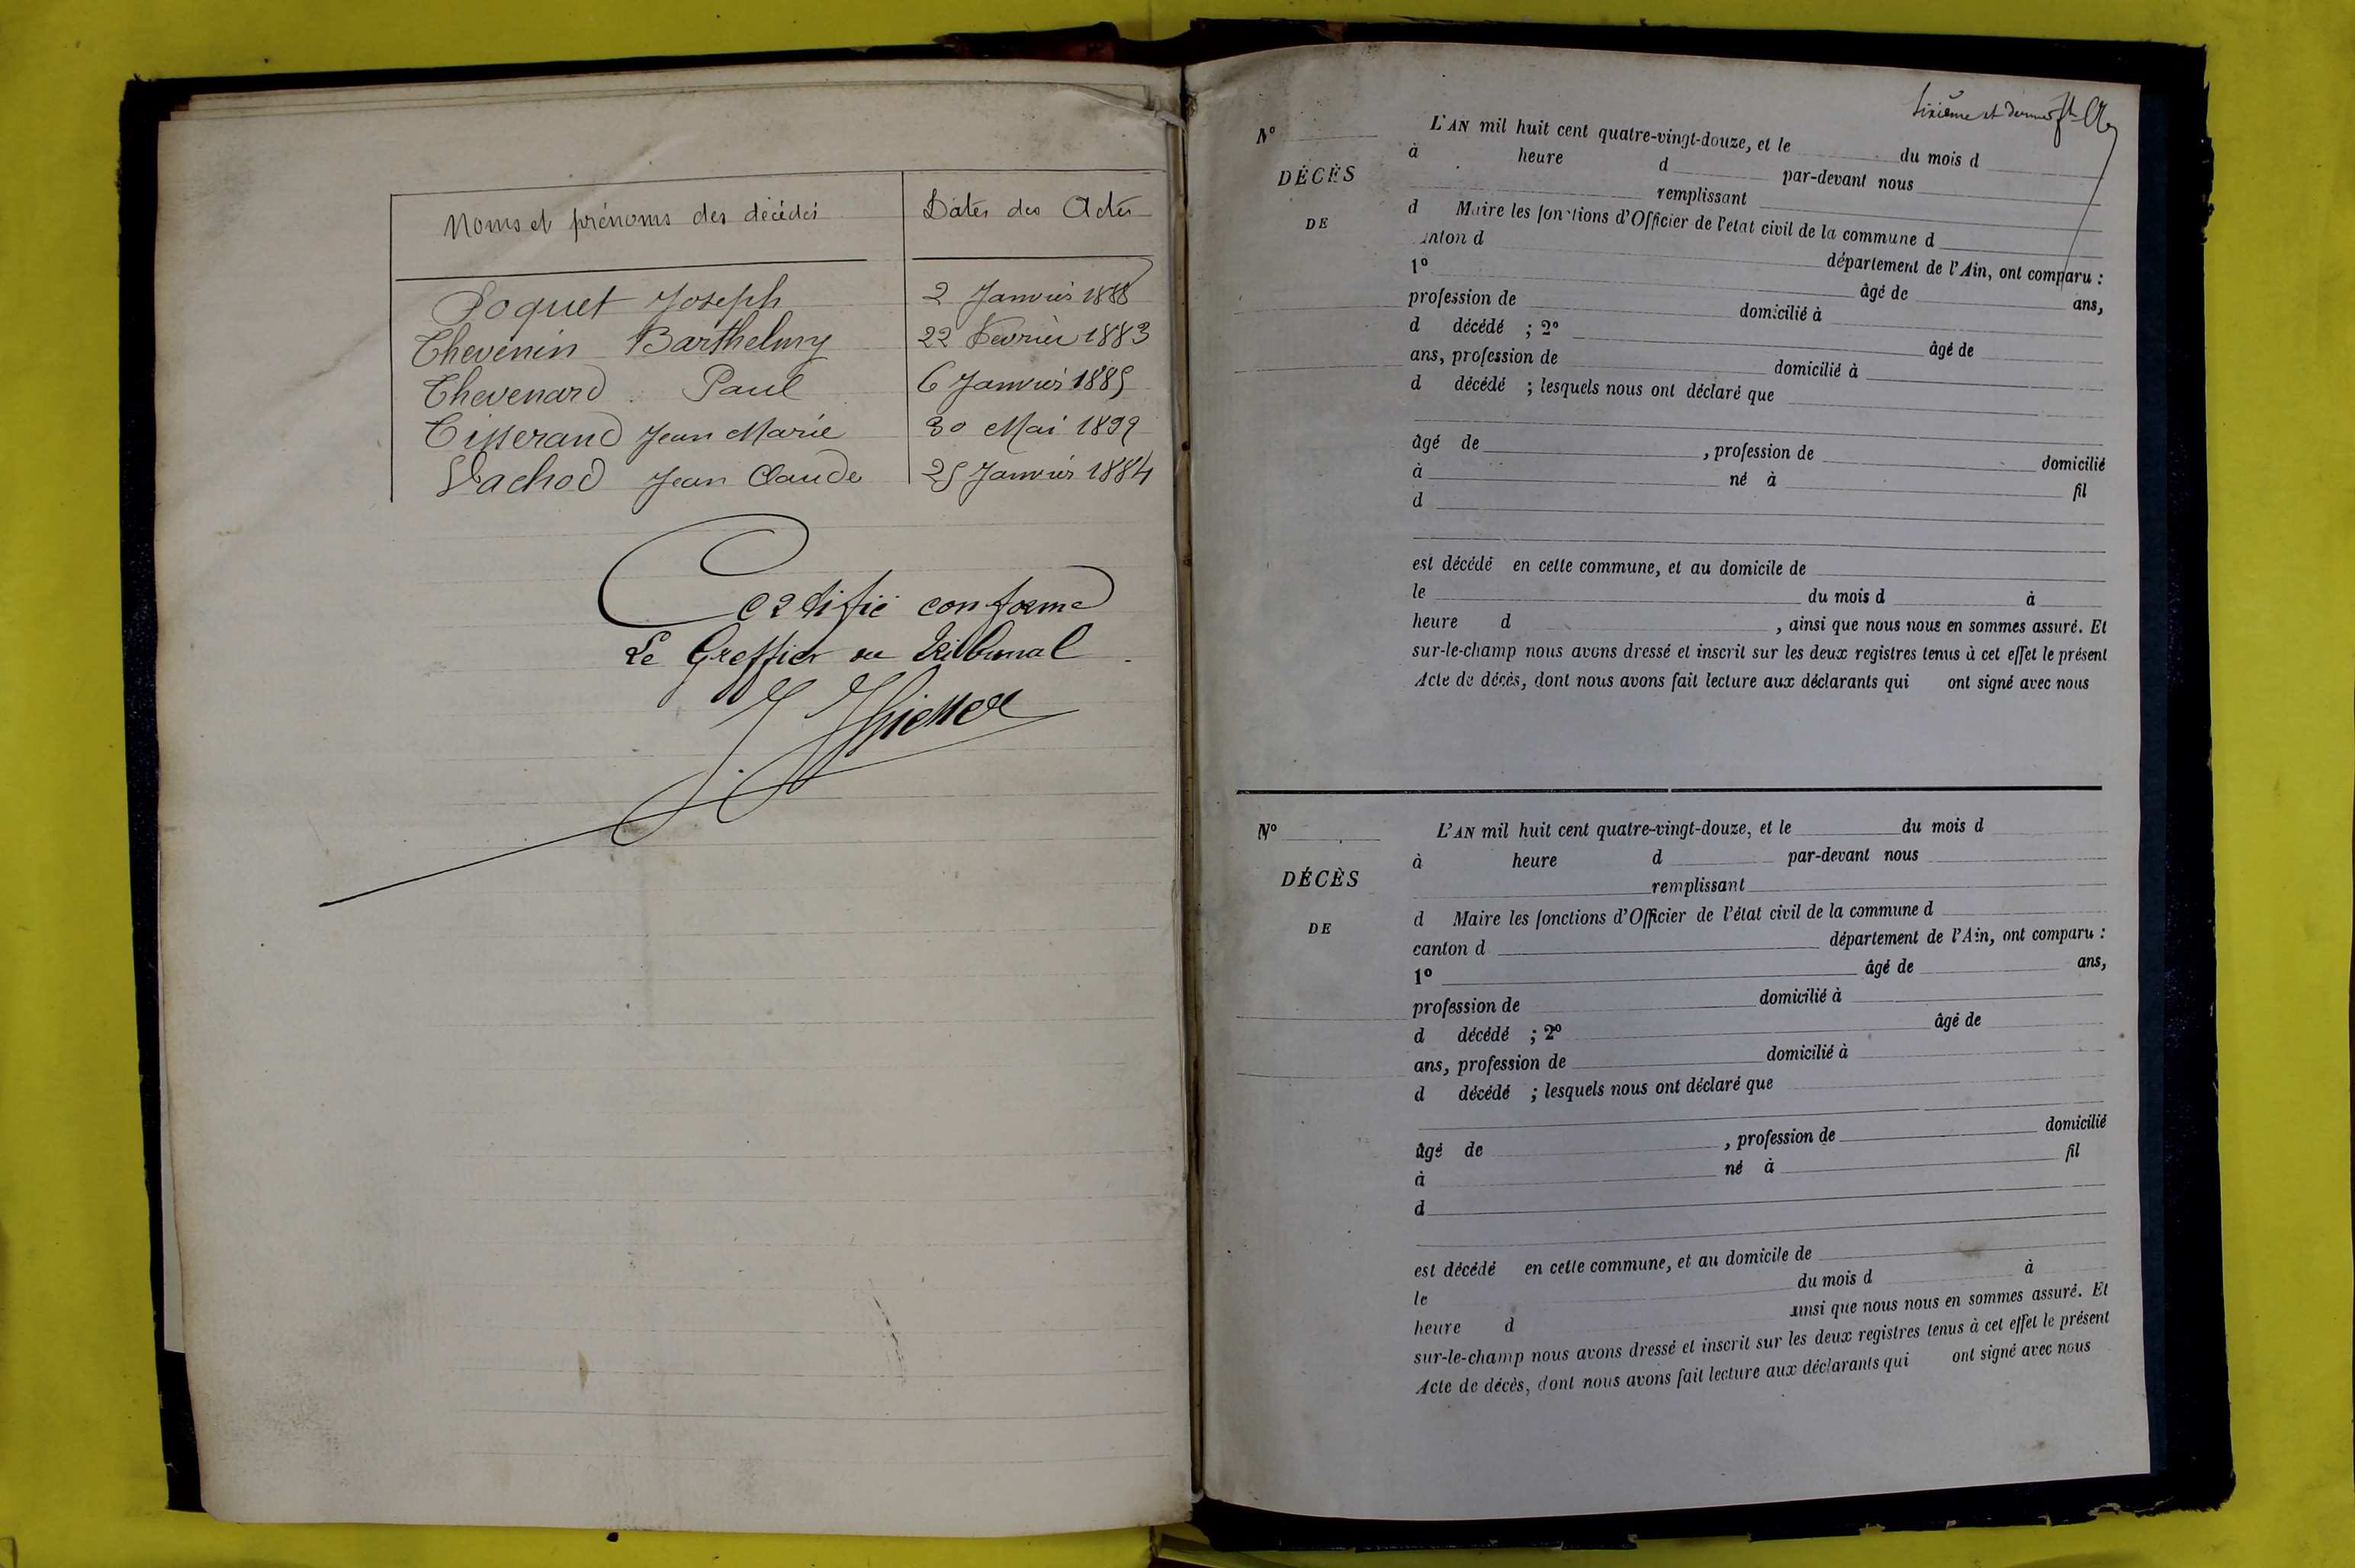 Noms et prénoms des décédés Dates des Actes
Poquet Joseph 2 Janvier 1888
Thevenin Barthelmy 22 Fevrier 1883
Thevenard Paul 6 Janvier 1885
Tisserand Jean Marie 30 Mai 1892
Vachod Jean Claude 25 Janvier 1884
Certifié conforme
Le Greffier du Tribunal
Sixième et dernier
N° L'AN mil huit cent quatre-vingt-douze, et le du mois d
à heure d par-devant nous
DÉCÈS
remplissant
DE
d Maire les fonctions d'Officier de l'état civil de la commune d
anton d département de l'Ain, ont comparu :
1° âgé de ans,
profession de domicilié à
d décédé ; 2° âgé de
ans, profession de domicilié à
d décédé ; lesquels nous ont déclaré que
âgé de , profession de domicilié
à né à fil
d
est décédé en cette commune, et au domicile de
le du mois d à
heure d , ainsi que nous nous en sommes assuré. Et
sur-le-champ nous avons dressé et inscrit sur les deux registres tenus à cet effet le présent
Acte de décès, dont nous avons fait lecture aux déclarants qui ont signé avec nous
N° L'AN mil huit cent quatre-vingt-douze, et le du mois d
à heure d par-devant nous
DÉCÈS
remplissant
DE
d Maire les fonctions d'Officier de l'état civil de la commune d
canton d département de l'Ain, ont comparu :
1° âgé de ans,
profession de domicilié à
d décédé ; 2° âgé de
ans, profession de domicilié à
d décédé ; lesquels nous ont déclaré que
âgé de , profession de domicilié
à né à fil
d
est décédé en cette commune, et au domicile de
le du mois d à
heure d ainsi que nous nous en sommes assuré. Et
sur-le-champ nous avons dressé et inscrit sur les deux registres tenus à cet effet le présent
Acte de décès, dont nous avons fait lecture aux déclarants qui ont signé avec nous